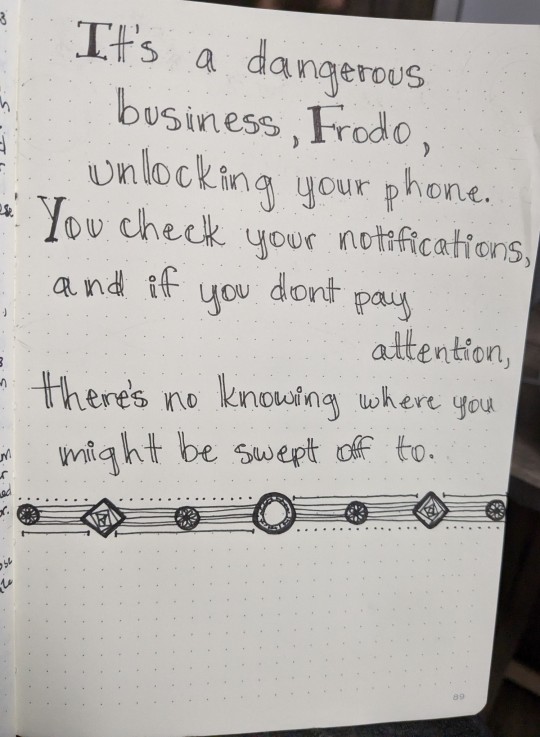 It's a dangerous
business, Frodo,
unlocking your phone.
You check your notifications,
and if you dont pay
attention,
there's no knowing where you
might be swept off to.
89